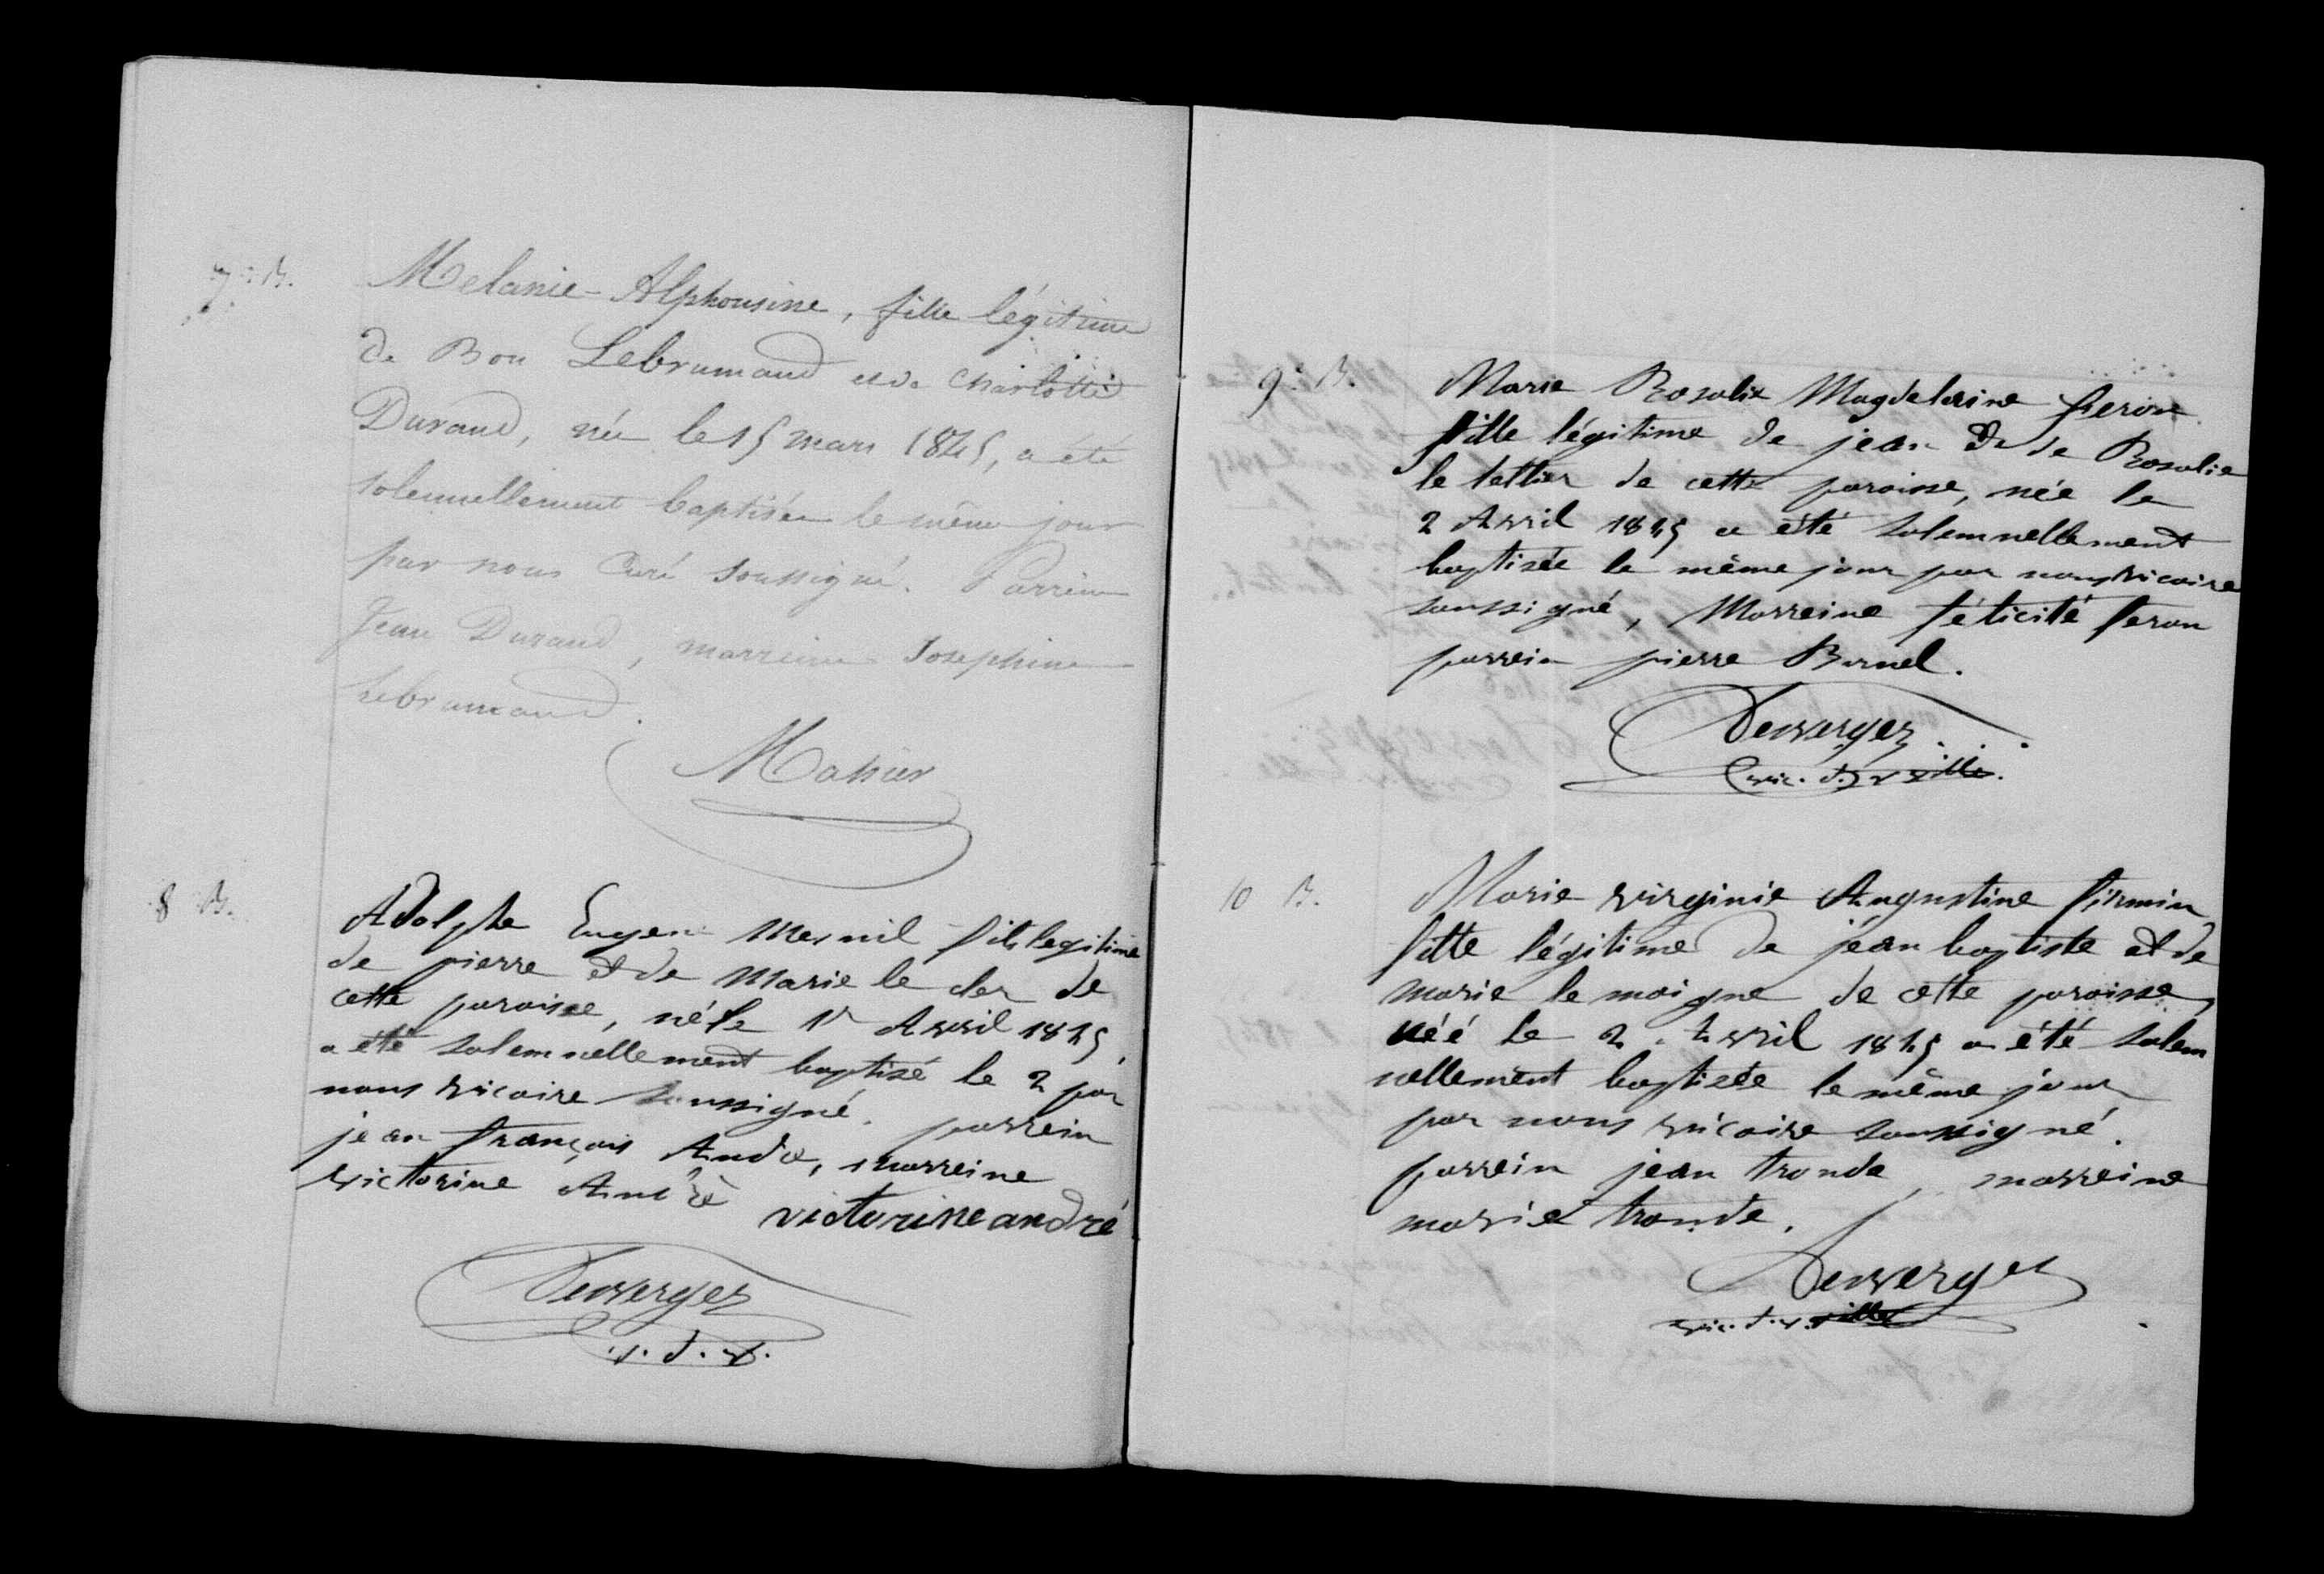 7e B.
Melanie-Alphonsine, fille légitime
de Bon Lebrumand et de Charlotte
Durand, née le 15 mars 1845, a été
solennellement baptisée le même jour
par nous Curé soussigné. Parrein
Jean Durand, marreine Josephine
Lebrumand.
Mahier
8 B.
Adolphe Eugene Mesnil fils legitime
de pierre et de Marie le cler de
cette paroisse, né le 1r Avril 1845,
a été solemnellement baptisé le 2 par
nous vicaire soussigné. parrein
jean françois André, marreine
victorine André
victorine andré
Desverges
v. d. v.
9e B.
Marie Rosalie Magdeleine feron
fille légitime de jean et de Rosalie
le tellier de cette paroisse, née le
2 Avril 1845 a été solemnellement
baptisée le même jour par nous vicaire
soussigné, Marreine félicité feron
parrein pierre Burnel.
Desverges
vic. d. v ville.
10 B.
Marie virginie Augustine firmin
fille légitime de jean baptiste et de
marie le moigne de cette paroisse,
née le 2. Avril 1845 a été solem
nellement baptisée le même jour
par nous vicaire soussigné.
parrein jean tronde, marreine
marie tronde.
Desverges
vic. d. v. ville